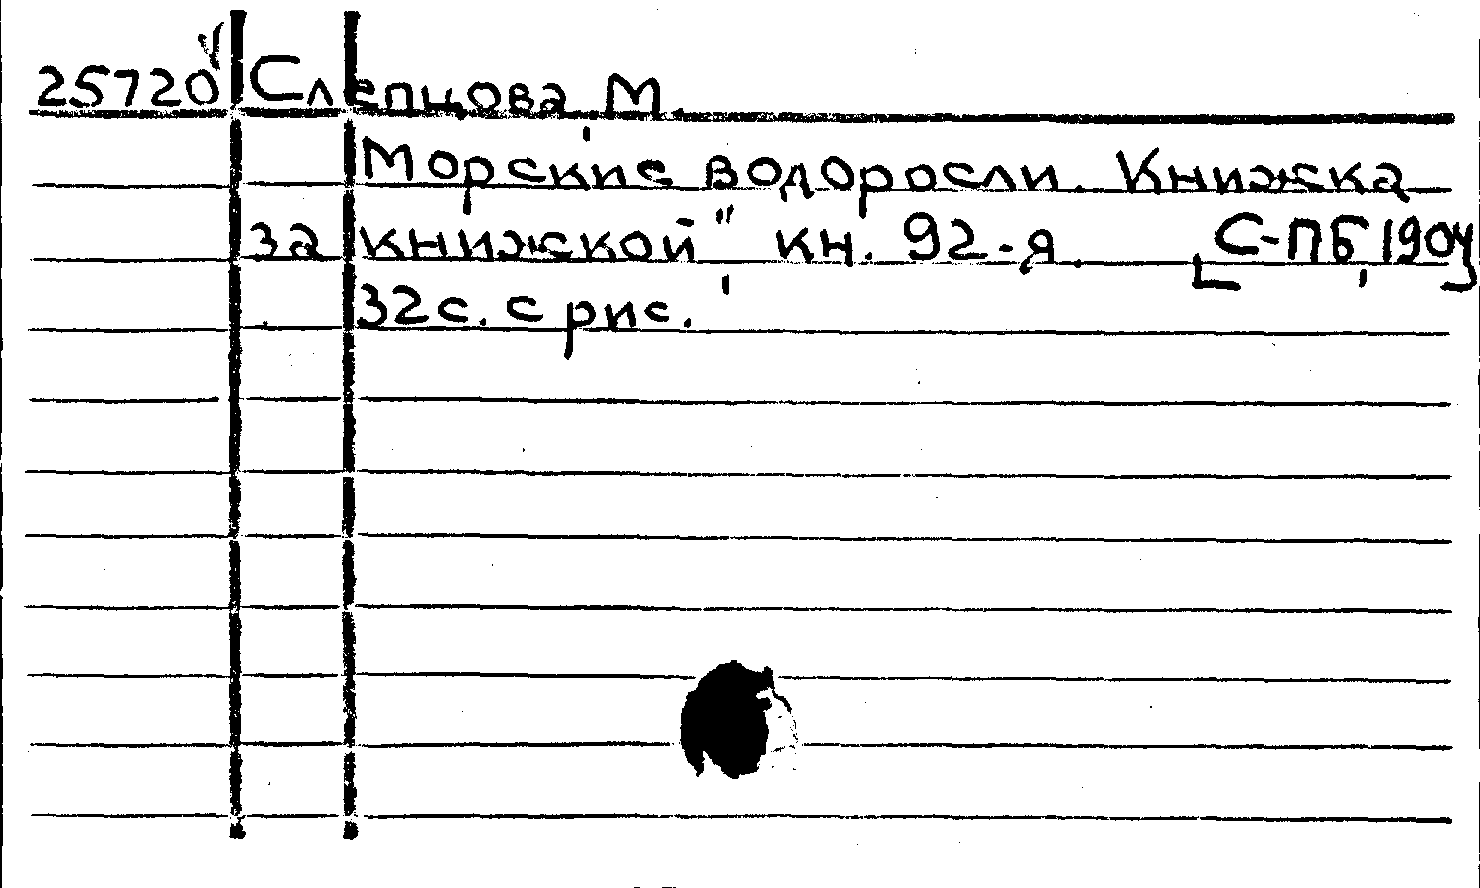 25720 Слепцова, М.
Морские водоросли. Книжка
за книжкой", кн. 92-я. [С-ПБ, 1904]
32с. с рис.